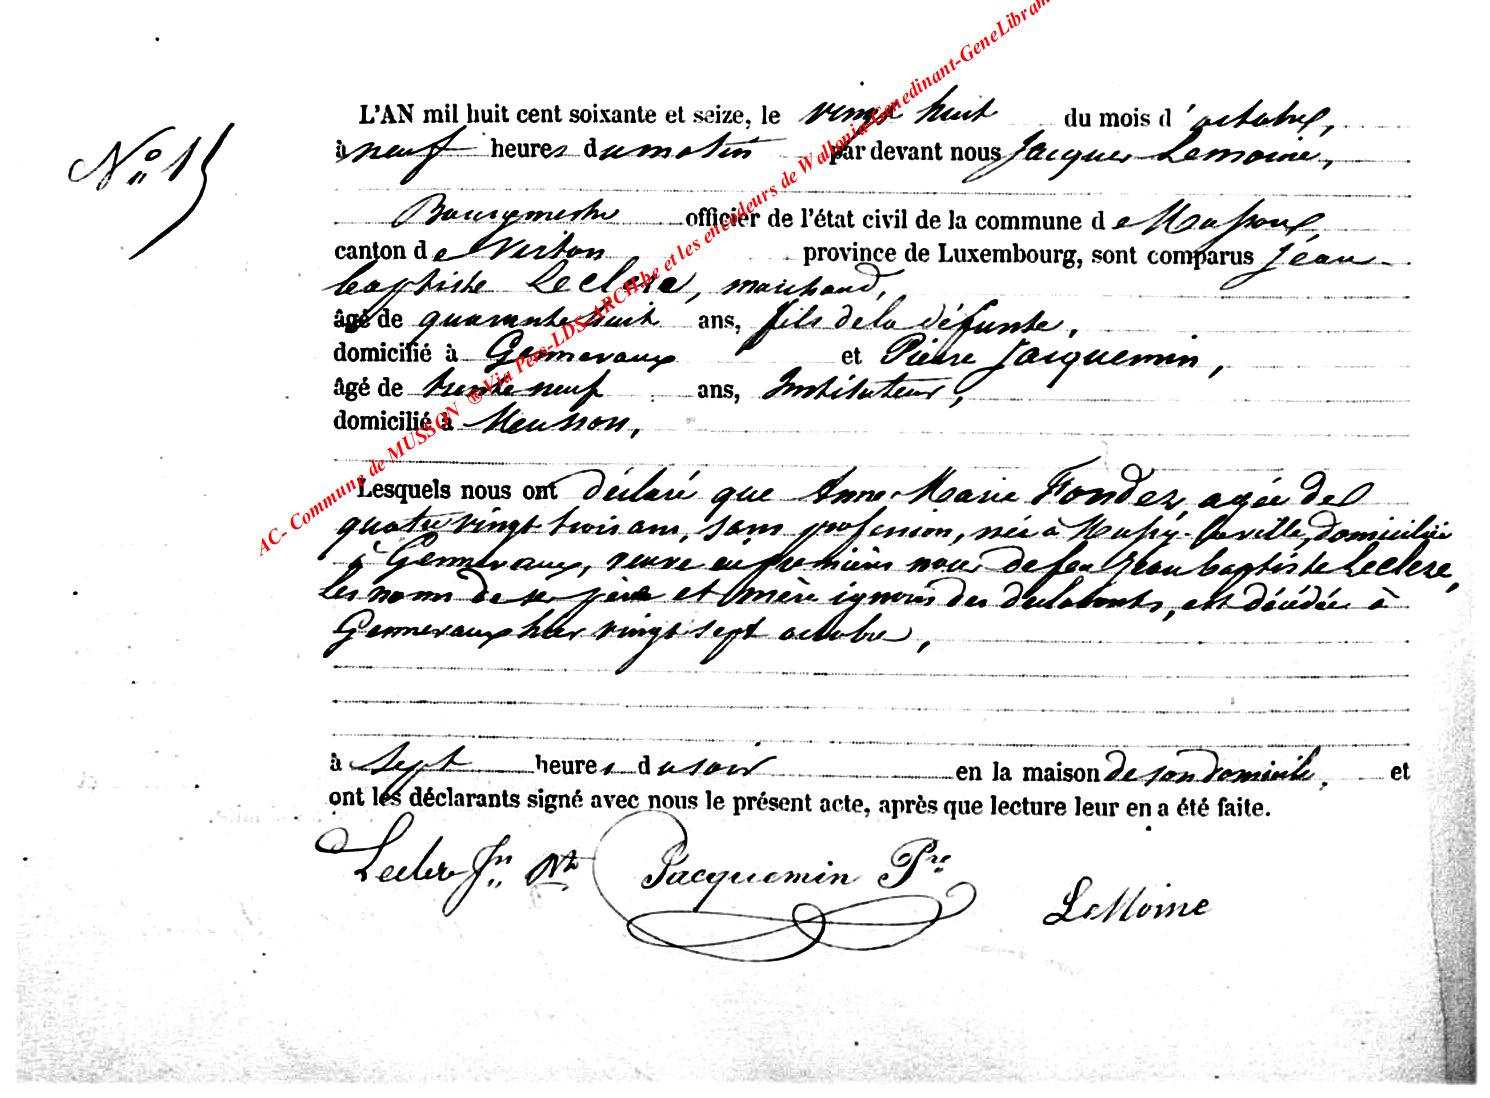 N° 15
L'AN mil huit cent soixante et seize, le vingt huit du mois d'octobre,
à neuf heures du matin par devant nous Jacques Lemoine,
Bourgmestre officier de l'état civil de la commune de Musson
canton de Virton province de Luxembourg, sont comparus Jean
baptiste Leclere, marchand,
âgé de quarante huit ans, fils de la défunte,
domicilié à Gennevaux et Pierre Jacquemin,
âgé de trente neuf ans, Instituteur,
domicilié à Musson,
Lesquels nous ont déclaré que Anne Marie Fondez, agée de
quatre vingt trois ans, sans profession, née à Mussy-la-ville, domiciliée
à Gennevaux, veuve en premières noces de feu Jean baptiste Leclere,
les noms de ses père et mère ignorés des déclarants, est décédée à
Gennevaux hier vingt sept octobre,
à Sept heures du soir en la maison de son domicile, et
ont les déclarants signé avec nous le présent acte, après que lecture leur en a été faite.
Leclere Jn Bte Jacquemin Pre
LeMoine
AC- Commune de MUSSON ® Via Pers-LDS-ARCH.be et les encodeurs de Wallonia-Genedinant-GeneLibram